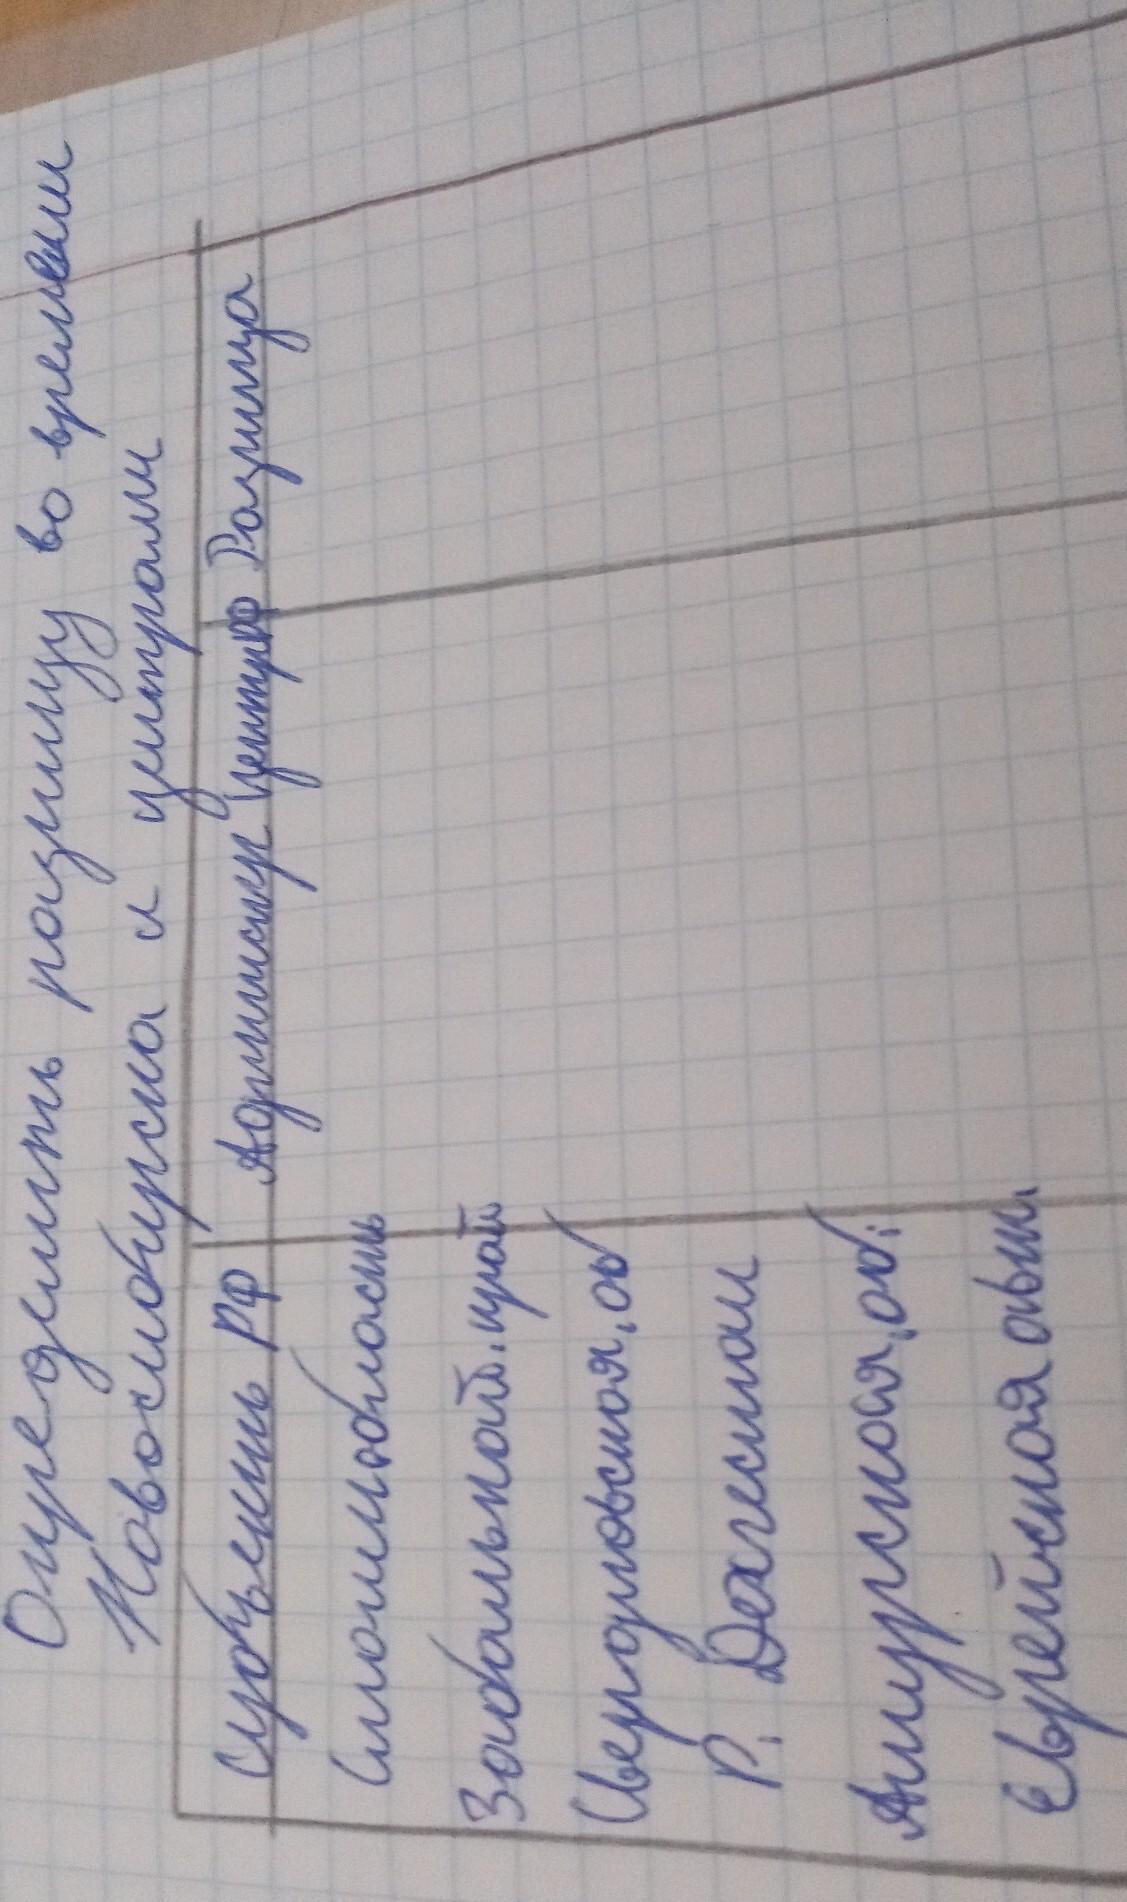 Определить разницу во времени
Новосибирска и центрами
Субъекты РФ Админист центр Разница
Смол.область
Забайкальский.край
Свердловская.об
Р. Дагестан
Амурская.об.
Еврейская автн.